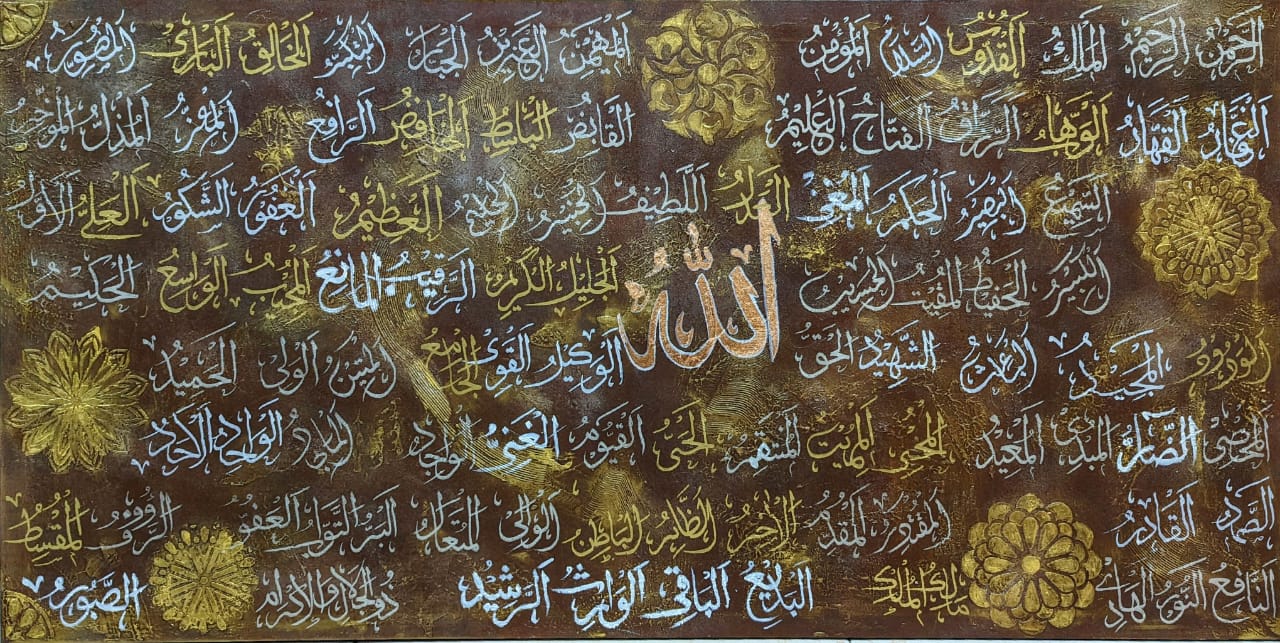 الرَّحْمٰنُ الرَّحِيْمُ المَلِكُ القُدُّوسُ السَّلَامُ المُؤْمِنُ المُهَيْمِنُ العَزِيْزُ الجَبَّارُ المُتَكَبِّرُ الخَالِقُ البَارِئُ المُصَوِّرُ
الغَفَّارُ القَهَّارُ الوَهَّابُ الرَّزَّاقُ الفَتَّاحُ العَلِيْمُ القَابِضُ البَاسِطُ الخَافِضُ الرَّافِعُ المُعِزُّ المُذِلُّ المُؤَخِّرُ
السَّمِيْعُ البَصِيْرُ الحَكَمُ المُغْنِي العَدْلُ اللَّطِيْفُ الخَبِيْرُ الحَلِيْمُ العَظِيْمُ الغَفُوْرُ الشَّكُوْرُ العَلِيُّ الأَوَّلُ
الكَبِيْرُ الحَفِيْظُ المُقِيْتُ الحَسِيْبُ اللّٰهُ الجَلِيْلُ الكَرِيْمُ الرَّقِيْبُ المَانِعُ المُجِيْبُ الوَاسِعُ الحَكِيْمُ
الوَدُوْدُ المَجِيْدُ الشَّهِيْدُ الحَقُّ الوَكِيْلُ القَوِيُّ الجَامِعُ المَتِيْنُ الوَلِيُّ الحَمِيْدُ
المُحْصِي الضَّارُّ المُبْدِئُ المُعِيْدُ المُحْيِي المُمِيْتُ المُنْتَقِمُ الحَيُّ القَيُّوْمُ الغَنِيُّ الوَاجِدُ المَاجِدُ الوَاحِدُ الأَحَدُ
الصَّمَدُ القَادِرُ المُقْتَدِرُ المُقَدِّمُ الآخِرُ الظَّاهِرُ البَاطِنُ الوَالِي المُتَعَالُ البَرُّ التَّوَّابُ العَفُوُّ الرَّؤُوْفُ المُقْسِطُ
النَّافِعُ النُّوْرُ الهَادِي مَالِكُ المُلْكِ البَدِيْعُ البَاقِي الوَارِثُ الرَّشِيْدُ ذُو الجَلَالِ وَالإِكْرَامِ الصَّبُوْرُ